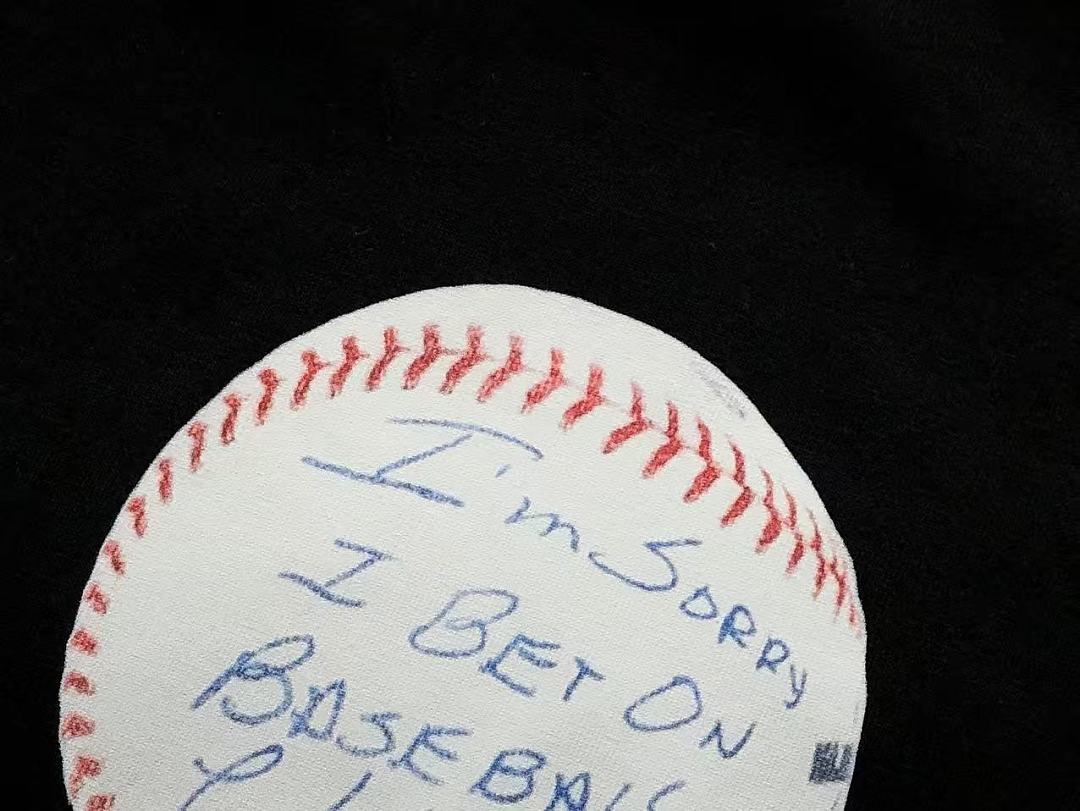 I'm SORRY
I BET ON
BASEBALL